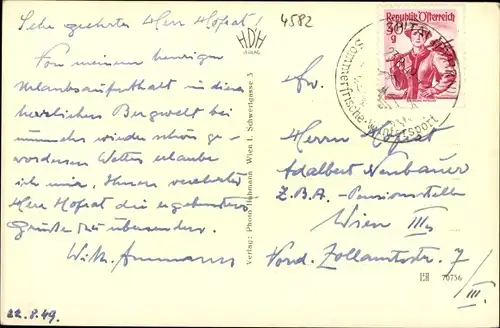 Sehr geehrter Herr Hofrat!
Von meinem heurigen
Urlaubsaufenthalt in dieser
herrlichen Bergwelt bei
nunmehr wieder schön ge-
wordenem Wetter erlaube
ich mir, Ihnen verehrter
Herr Hofrat die ergebensten
Grüße zu übersenden.
22.8.49.
4582
HDH
Verlag: Photo Hubmann Wien I. Schwertgasse 3
Republik Österreich
30
g
Sommerfrische · Wintersport
Herrn Hofrat
Adalbert Neubauer
Z.B.A. - Pensionsstelle
Wien III,
Nord. Zollamtsstr. 7
III.
70756